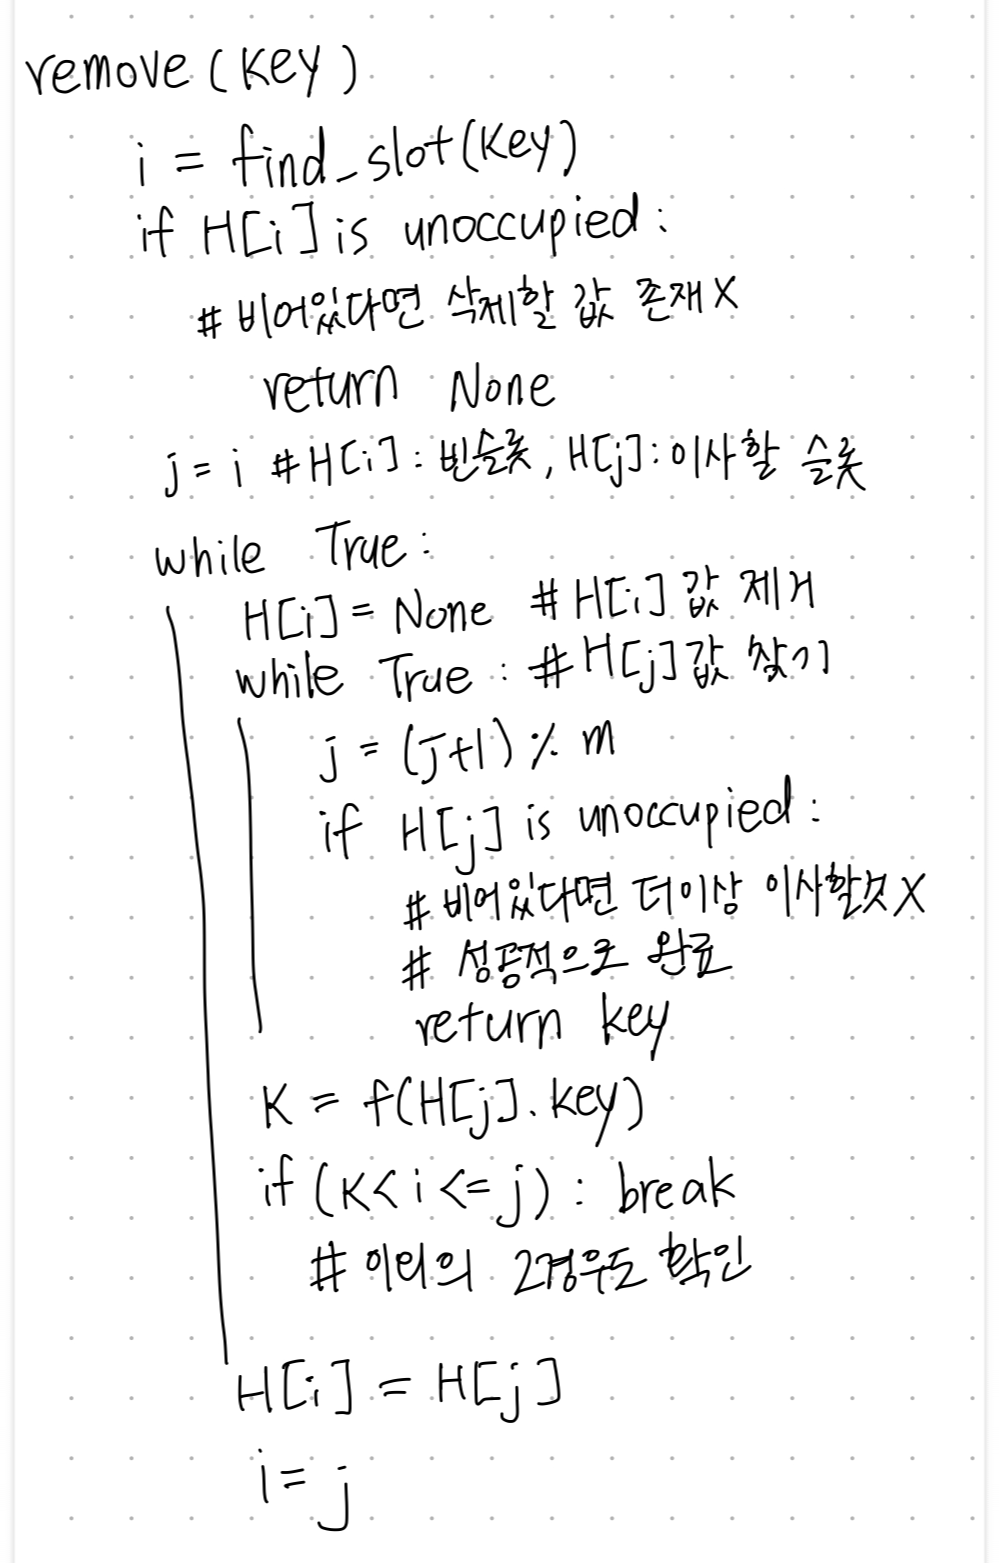 remove(key)
i = find_slot(key)
if H[i] is unoccupied:
# 비어있다면 삭제할 값 존재X
return None
j = i # H[i]: 빈슬롯, H[j]: 이사할 슬롯
while True:
H[i] = None # H[i] 값 제거
while True: # H[j] 값 찾기
j = (j+1) % m
if H[j] is unoccupied:
# 비어있다면 더이상 이사할것 X
# 성공적으로 완료
return key
K = f(H[j].key)
if (K < i <= j): break
# 이외의 2경우도 확인
H[i] = H[j]
i = j